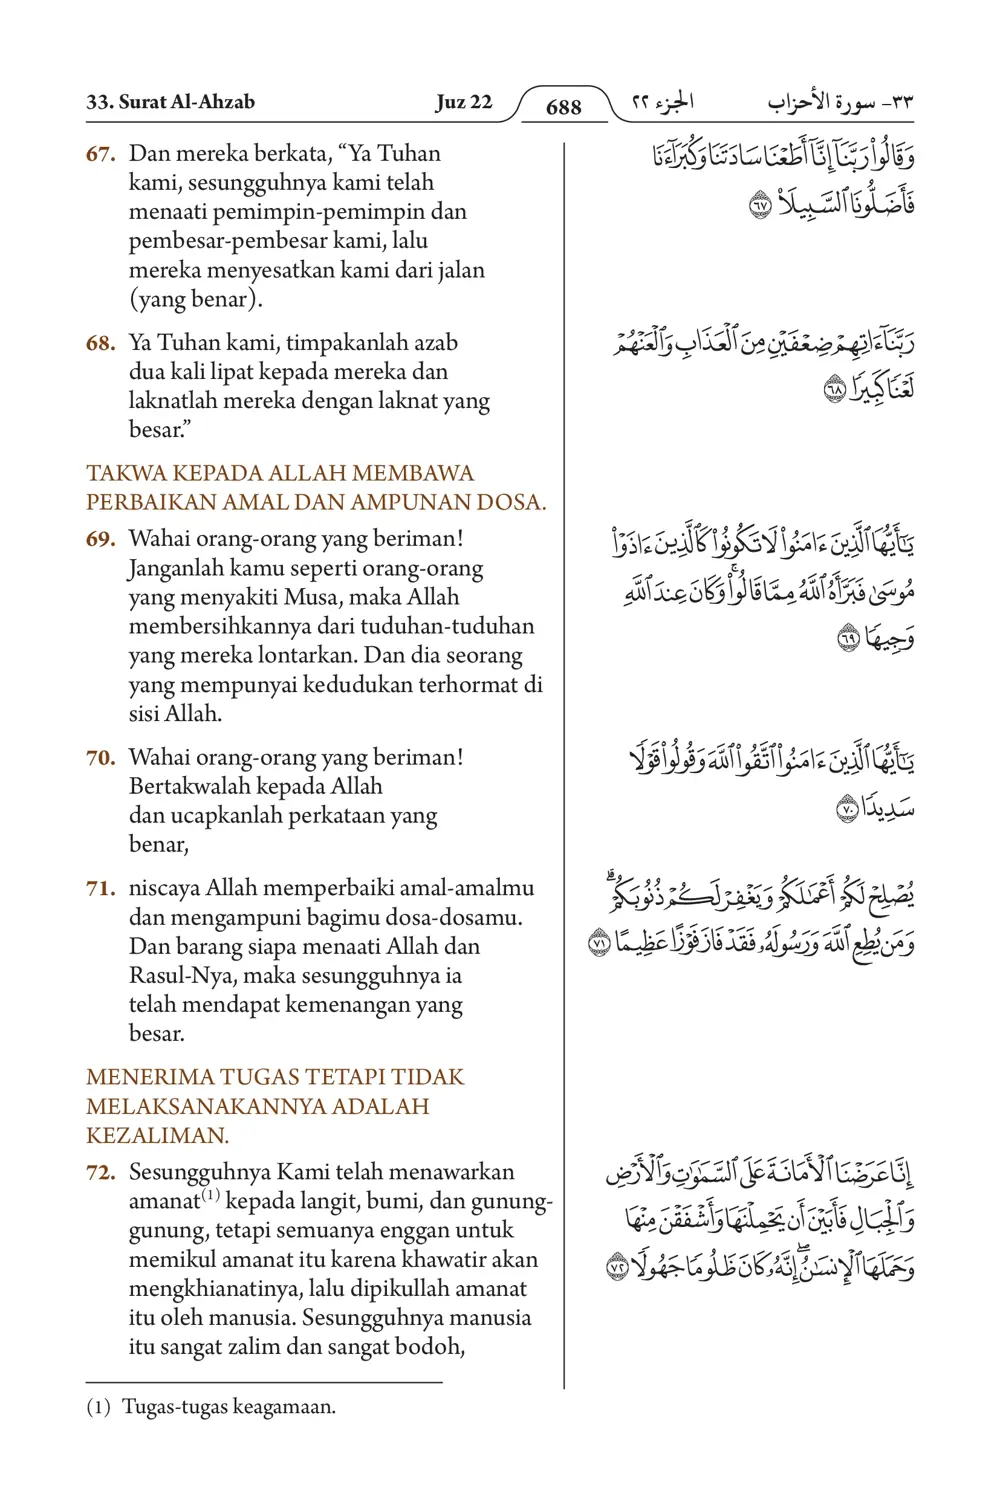 33. Surat Al-Ahzab Juz 22 688 الجزء ٢٢ ٣٣- سورة الأحزاب
67. Dan mereka berkata, “Ya Tuhan
kami, sesungguhnya kami telah
menaati pemimpin-pemimpin dan
pembesar-pembesar kami, lalu
mereka menyesatkan kami dari jalan
(yang benar).
68. Ya Tuhan kami, timpakanlah azab
dua kali lipat kepada mereka dan
laknatlah mereka dengan laknat yang
besar.”
TAKWA KEPADA ALLAH MEMBAWA
PERBAIKAN AMAL DAN AMPUNAN DOSA.
69. Wahai orang-orang yang beriman!
Janganlah kamu seperti orang-orang
yang menyakiti Musa, maka Allah
membersihkannya dari tuduhan-tuduhan
yang mereka lontarkan. Dan dia seorang
yang mempunyai kedudukan terhormat di
sisi Allah.
70. Wahai orang-orang yang beriman!
Bertakwalah kepada Allah
dan ucapkanlah perkataan yang
benar,
71. niscaya Allah memperbaiki amal-amalmu
dan mengampuni bagimu dosa-dosamu.
Dan barang siapa menaati Allah dan
Rasul-Nya, maka sesungguhnya ia
telah mendapat kemenangan yang
besar.
MENERIMA TUGAS TETAPI TIDAK
MELAKSANAKANNYA ADALAH
KEZALIMAN.
72. Sesungguhnya Kami telah menawarkan
amanat(1) kepada langit, bumi, dan gunung-
gunung, tetapi semuanya enggan untuk
memikul amanat itu karena khawatir akan
mengkhianatinya, lalu dipikullah amanat
itu oleh manusia. Sesungguhnya manusia
itu sangat zalim dan sangat bodoh,
(1) Tugas-tugas keagamaan.
وَقَالُوا۟ رَبَّنَآ إِنَّآ أَطَعْنَا سَادَتَنَا وَكُبَرَآءَنَا
فَأَضَلُّونَا ٱلسَّبِيلَا۠ ٦٧
رَبَّنَآ ءَاتِهِمْ ضِعْفَيْنِ مِنَ ٱلْعَذَابِ وَٱلْعَنْهُمْ
لَعْنًا كَبِيرًا ٦٨
يَـٰٓأَيُّهَا ٱلَّذِينَ ءَامَنُوا۟ لَا تَكُونُوا۟ كَٱلَّذِينَ ءَاذَوْا۟
مُوسَىٰ فَبَرَّأَهُ ٱللَّهُ مِمَّا قَالُوا۟ ۚ وَكَانَ عِندَ ٱللَّهِ
وَجِيهًا ٦٩
يَـٰٓأَيُّهَا ٱلَّذِينَ ءَامَنُوا۟ ٱتَّقُوا۟ ٱللَّهَ وَقُولُوا۟ قَوْلًا
سَدِيدًا ٧٠
يُصْلِحْ لَكُمْ أَعْمَـٰلَكُمْ وَيَغْفِرْ لَكُمْ ذُنُوبَكُمْ ۗ
وَمَن يُطِعِ ٱللَّهَ وَرَسُولَهُۥ فَقَدْ فَازَ فَوْزًا عَظِيمًا ٧١
إِنَّا عَرَضْنَا ٱلْأَمَانَةَ عَلَى ٱلسَّمَـٰوَٰتِ وَٱلْأَرْضِ
وَٱلْجِبَالِ فَأَبَيْنَ أَن يَحْمِلْنَهَا وَأَشْفَقْنَ مِنْهَا
وَحَمَلَهَا ٱلْإِنسَـٰنُ ۖ إِنَّهُۥ كَانَ ظَلُومًا جَهُولًا ٧٢